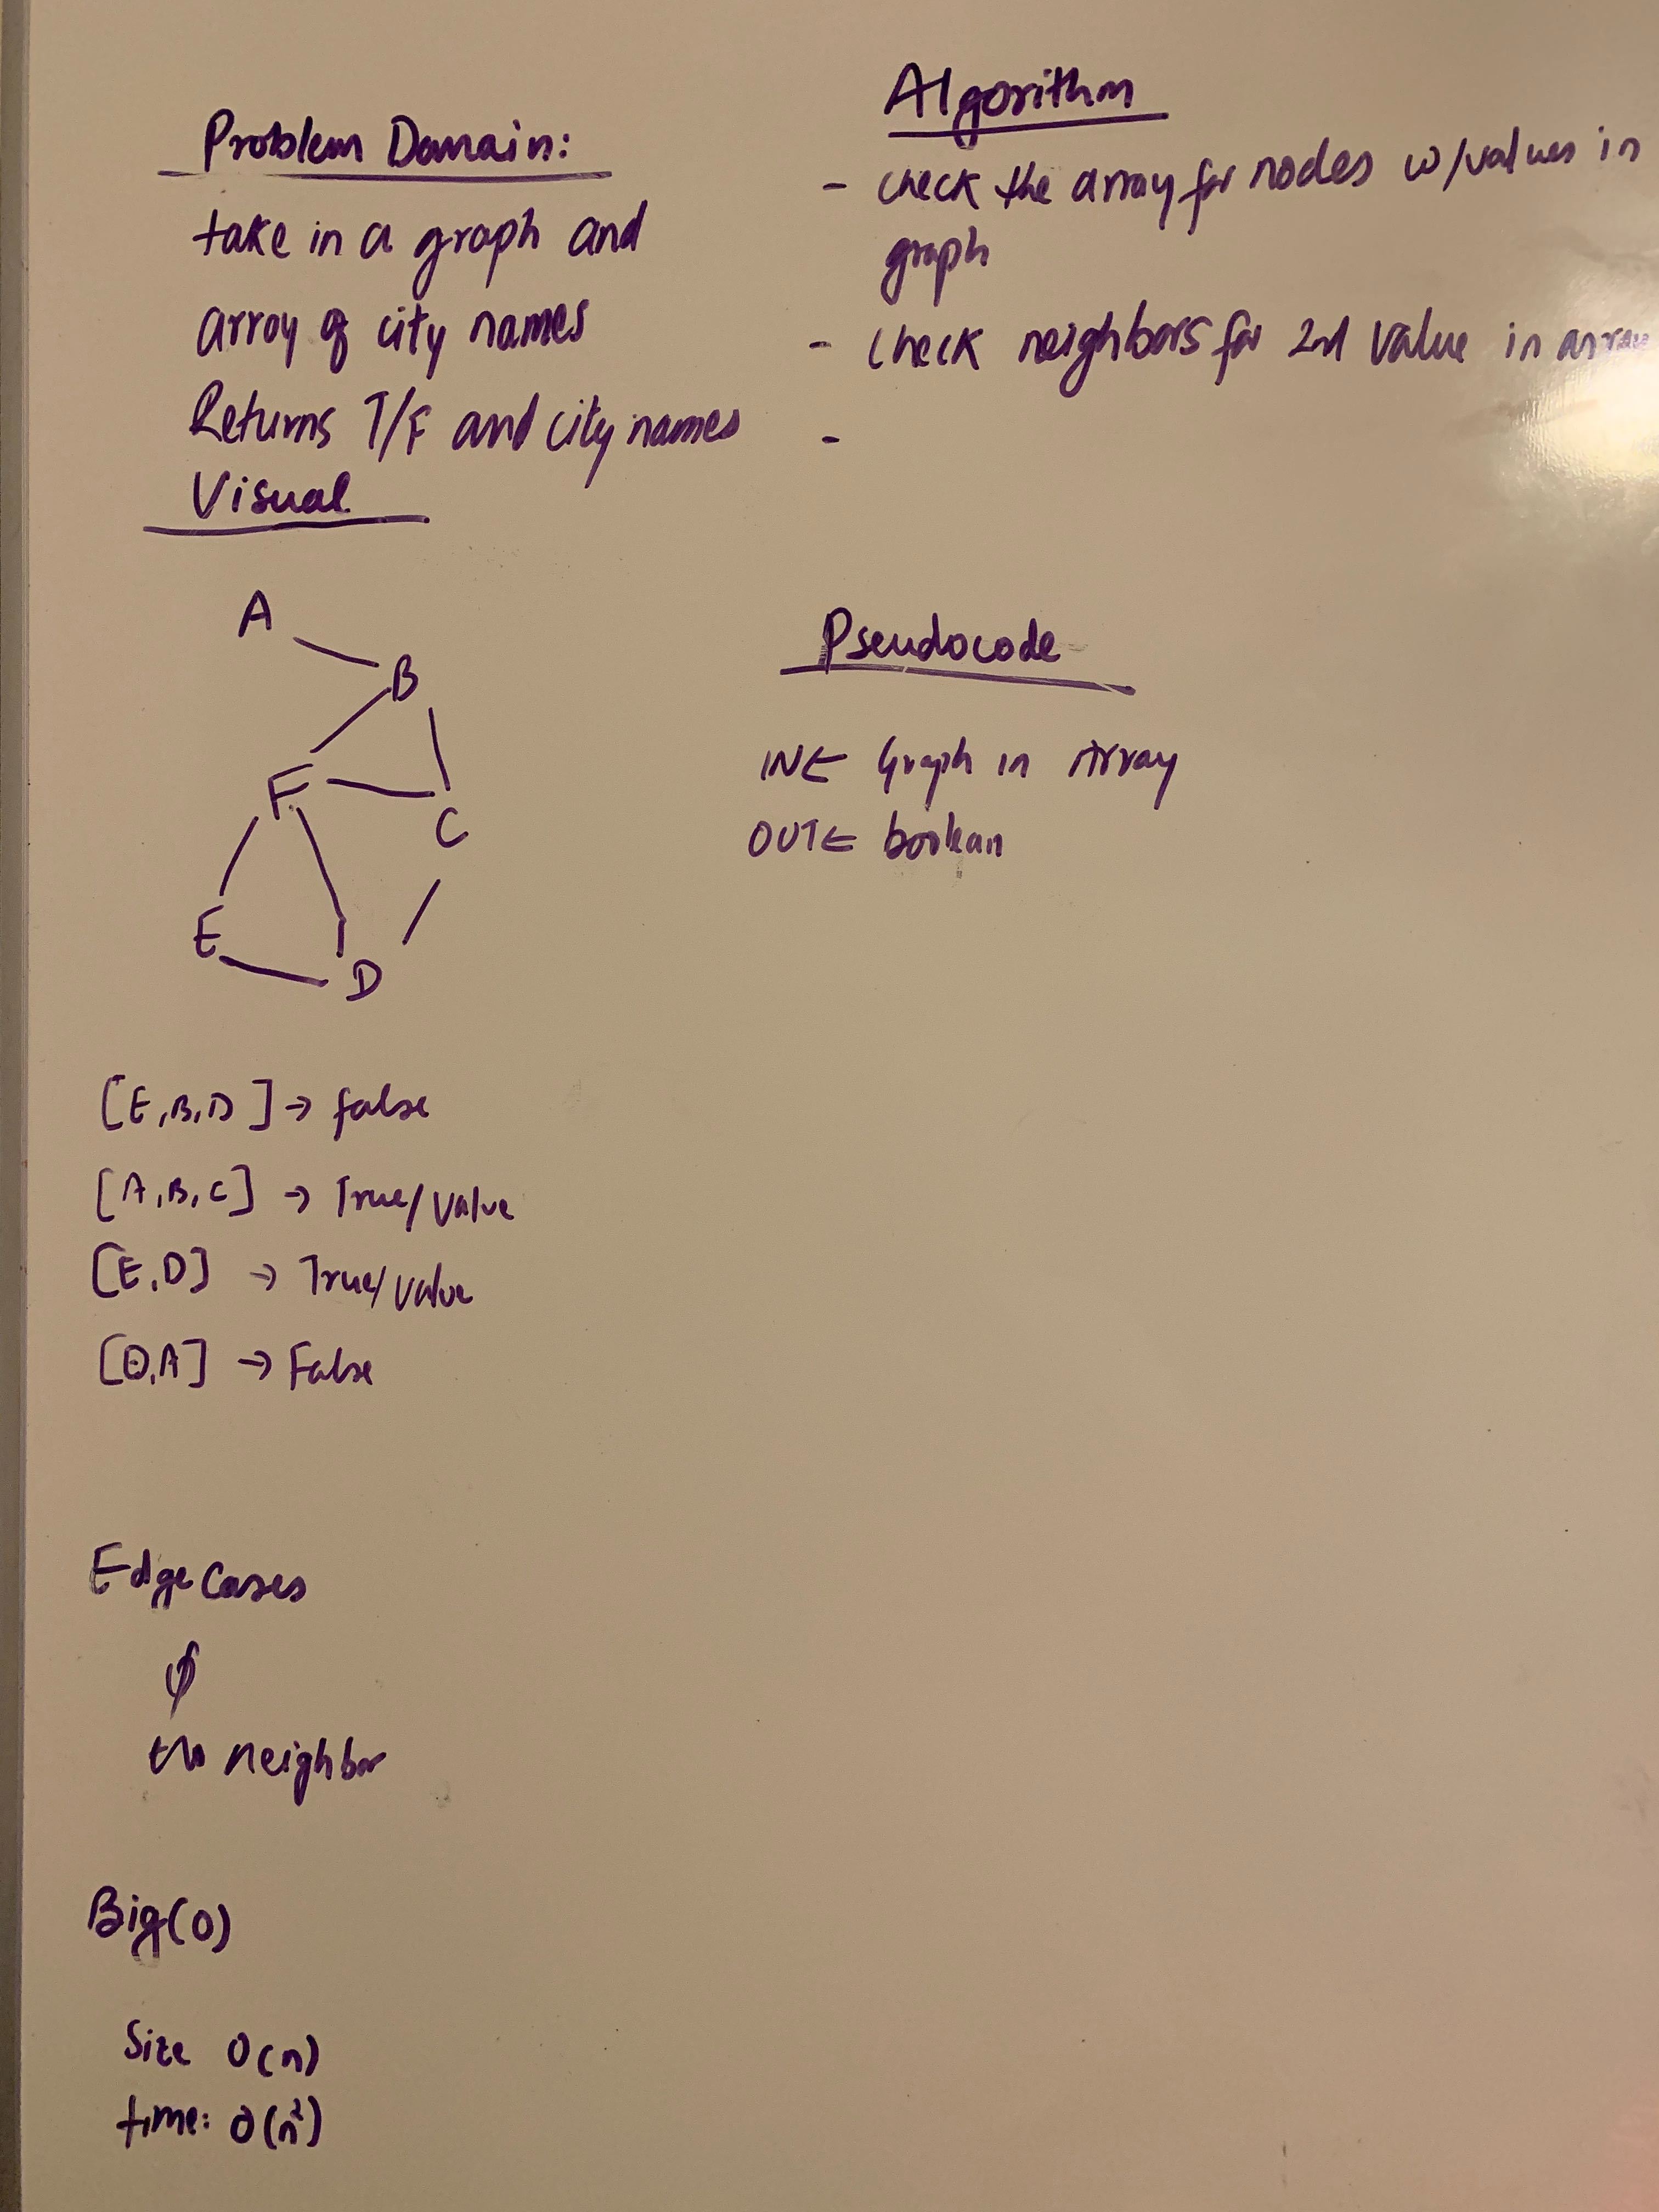 Problem Domain:
take in a graph and
array of city names
Returns T/F and city names
Visual
A
B
F
C
E
D
[E,B,D] → false
[A,B,C] → True/Value
[E,D] → True/Value
[D,A] → False
Edge Cases
φ
neighbor
Big(O)
Size O(n)
time: O(n²)
Algorithm
- check the array for nodes w/values in
graph
- check neighbors for 2nd value in array
-
Pseudocode
IN ← Graph in Array
OUT ← boolean